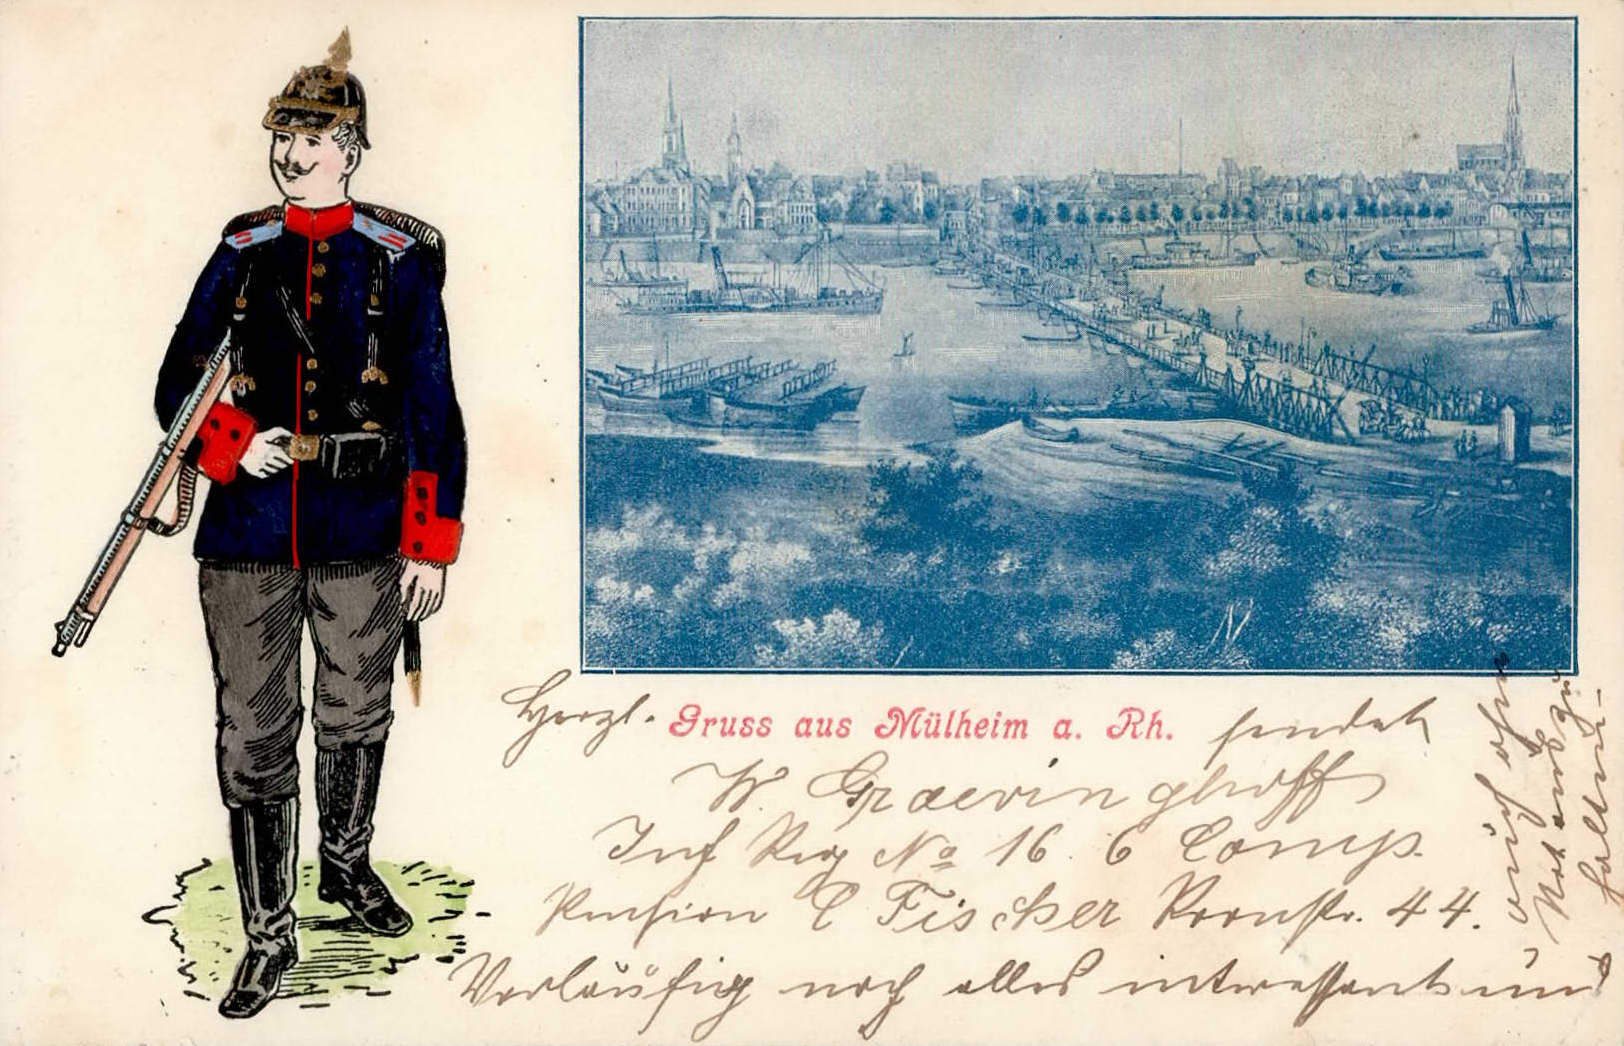 Herzl. Gruss aus Mülheim a. Rh. sendet
W. Graevinghoff
Inf Reg No 16. 6 Comp.
Pension E Fischer Roonstr. 44.
Vorläufig noch alles interessant und
auch ohne
Not